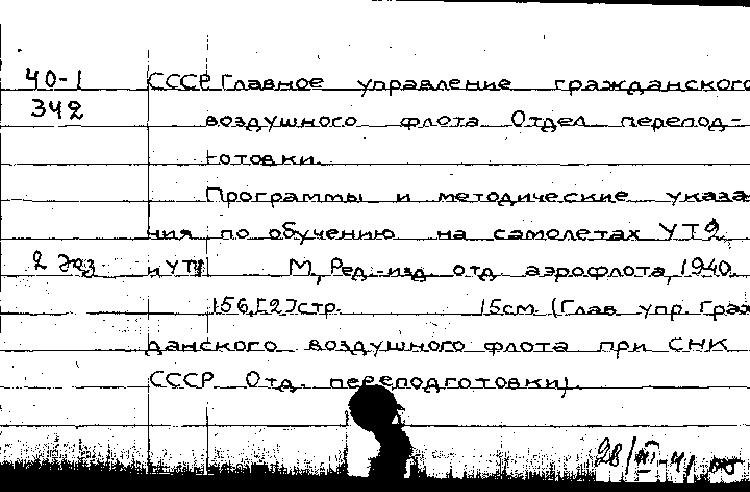 40-1 СССР Главное управление гражданского
342 воздушного флота Отдел перепод-
готовки.
Программы и методические указа
ния по обучению на самолетах УТ2
2 экз и УТ1 М, Ред.-изд отд аэрофлота, 1940.
156,[2]стр. 15см (Глав упр. Граж
данского воздушного флота при СНК
СССР. Отд. переподготовки).
28/III-41